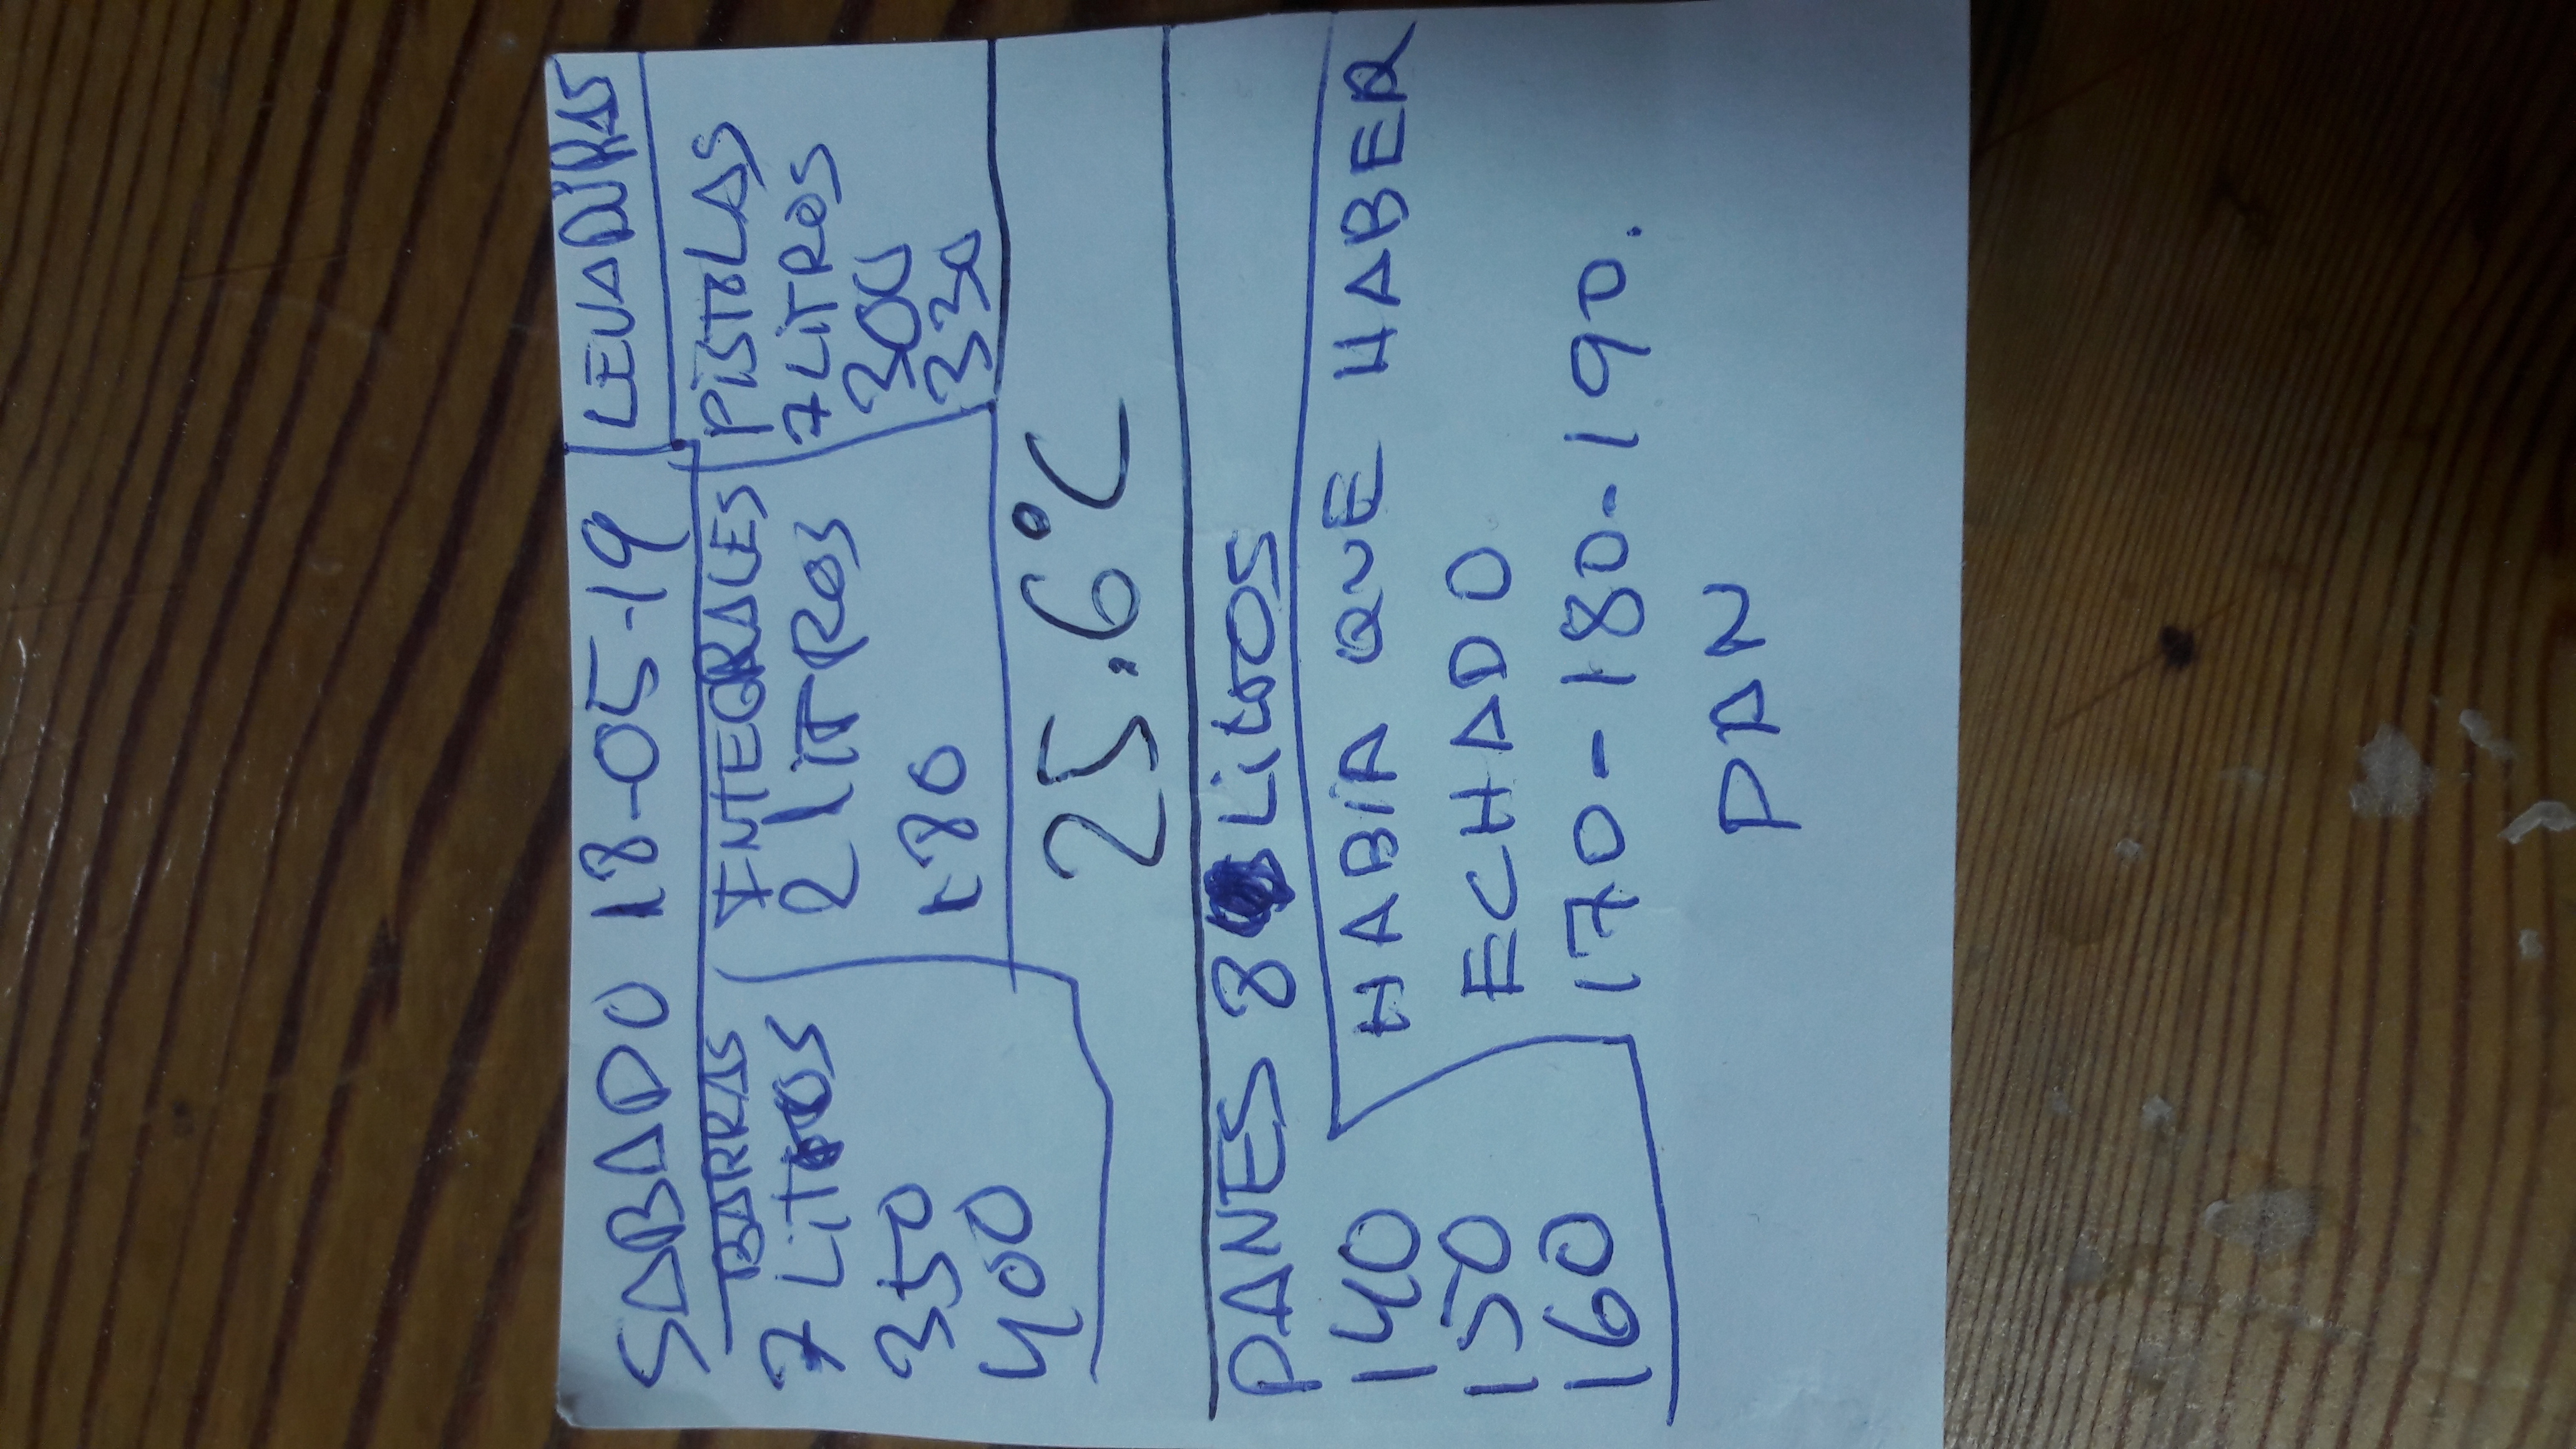 SABADO 18-05-19 LEVADURAS
BARRAS
7 LITROS
350
400
INTEGRALES
2 LITROS
180
PISTOLAS
7 LITROS
300
330
25.6°C
PANES 8 LITROS
140
150
160
HABIA QUE HABER
ECHADO
170-180-190.
PAN